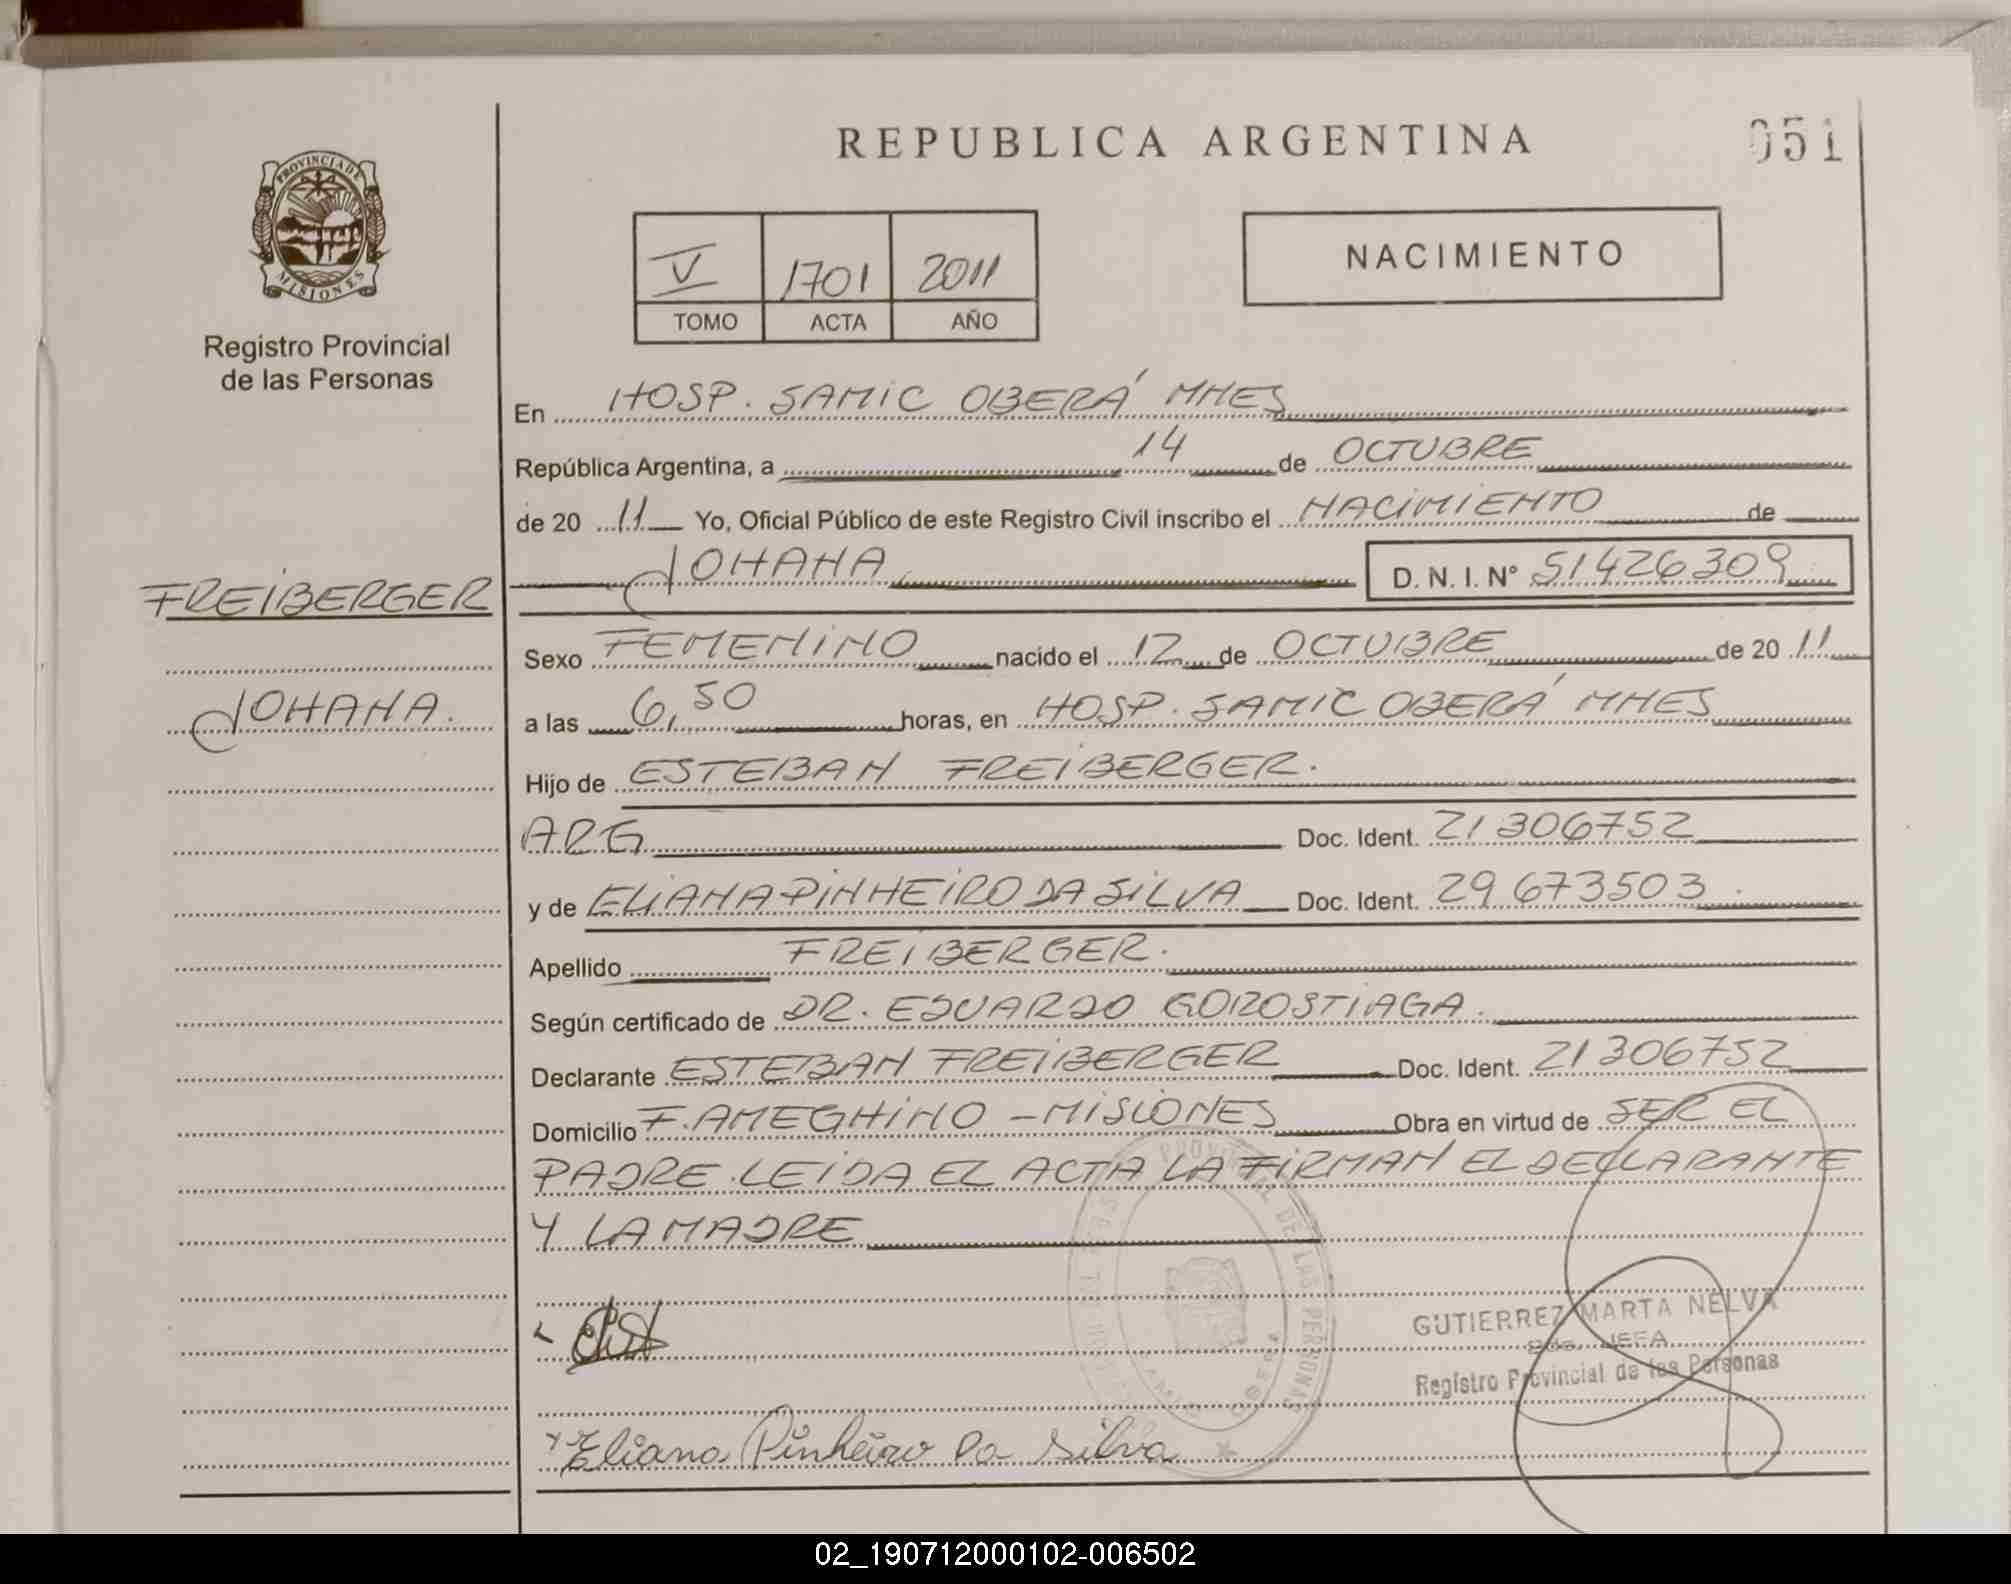 REPUBLICA ARGENTINA
051
PROVINCIA DE
MISIONES
Registro Provincial
de las Personas
NACIMIENTO
V 1701 2011
TOMO ACTA AÑO
En HOSP. SAMIC OBERÁ MNES
República Argentina, a 14 de OCTUBRE
de 20 11 Yo, Oficial Público de este Registro Civil inscribo el NACIMIENTO de
JOHANA D. N. I. N° 51426309
FREIBERGER
JOHANA.
Sexo FEMENINO nacido el 12 de OCTUBRE de 20 11
a las 6,50 horas, en HOSP. SAMIC OBERÁ MNES
Hijo de ESTEBAN FREIBERGER.
ARG Doc. Ident. 21306752
y de ELIANA PINHEIRO DA SILVA Doc. Ident. 29673503.
Apellido FREIBERGER.
Según certificado de DR. EDUARDO GOROSTIAGA.
Declarante ESTEBAN FREIBERGER Doc. Ident. 21306752
Domicilio F. AMEGHINO - MISIONES Obra en virtud de SER EL
PADRE. LEIDA EL ACTA LA FIRMAN EL DECLARANTE
Y LA MADRE
PROVINCIAL DE LAS PERSONAS
GUTIERREZ MARTA NELVA
JEFA
Registro Provincial de las Personas
Eliana Pinheiro Da Silva
02_190712000102-006502